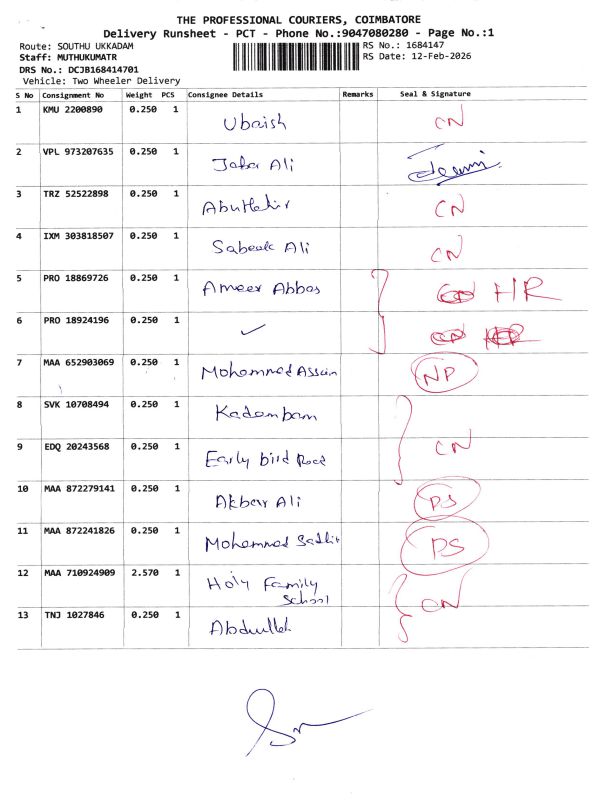 THE PROFESSIONAL COURIERS, COIMBATORE
Delivery Runsheet - PCT - Phone No.:9047080280 - Page No.:1
Route: SOUTHU UKKADAM
RS No.: 1684147
Staff: MUTHUKUMATR
RS Date: 12-Feb-2026
DRS No.: DCJB168414701
Vehicle: Two Wheeler Delivery
S No Consignment No Weight PCS Consignee Details Remarks Seal & Signature
1 KMU 2200890 0.250 1 Ubaish CN
2 VPL 973207635 0.250 1 Jafar Ali
3 TRZ 52522898 0.250 1 Abuthahir CN
4 IXM 303818507 0.250 1 Sabeek Ali CN
5 PRO 18869726 0.250 1 Ameer Abbas HR
6 PRO 18924196 0.250 1 ✓
7 MAA 652903069 0.250 1 Mohammed Assain NP
8 SVK 10708494 0.250 1 Kadambam
9 EDQ 20243568 0.250 1 Early bird CN
10 MAA 872279141 0.250 1 Akbar Ali DS
11 MAA 872241826 0.250 1 Mohammed DS
12 MAA 710924909 2.570 1 Holy Family
School CN
13 TNJ 1027846 0.250 1 Abdullah